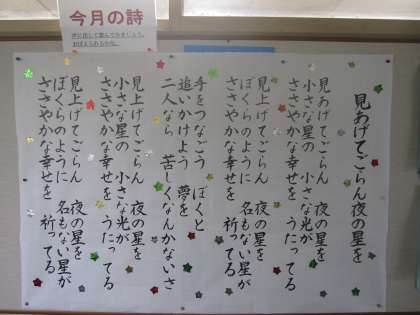 今月の詩
声に出して読んでみましょう。
おぼえられるかな。
見あげてごらん夜の星を
見あげてごらん 夜の星を
小さな星の 小さな光が
ささやかな幸せを うたってる
見上げてごらん 夜の星を
ぼくらのように 名もない星が
ささやかな幸せを 祈ってる
手をつなごう ぼくと
追いかけよう 夢を
二人なら 苦しくなんかないさ
見上げてごらん 夜の星を
小さな星の 小さな光が
ささやかな幸せを うたってる
見上げてごらん 夜の星を
ぼくらのように 名もない星が
ささやかな幸せを 祈ってる